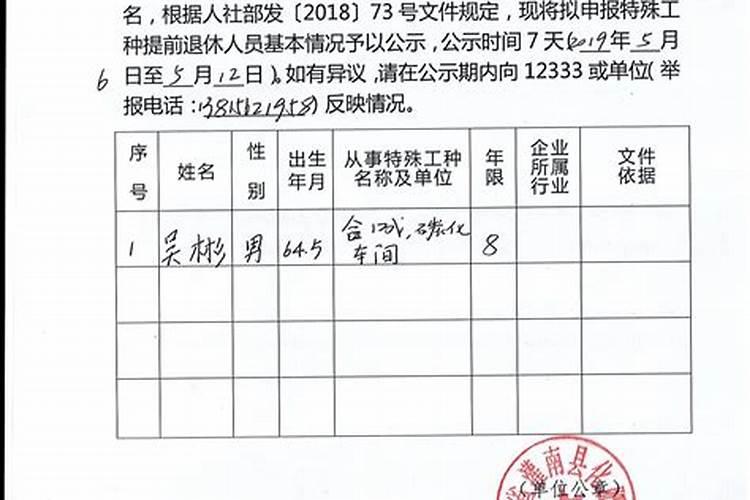 名，根据人社部发〔2018〕73号文件规定，现将拟申报特殊工
种提前退休人员基本情况予以公示，公示时间7天(2019年5月
6日至5月12日)。如有异议，请在公示期内向12333或单位(举
报电话：13815621958)反映情况。
序号 姓名 性别 出生年月 从事特殊工种名称及单位 年限 企业所属行业 文件依据
1 吴彬 男 64.5 合成,碳化车间 8
灌南县化
(单位公章)